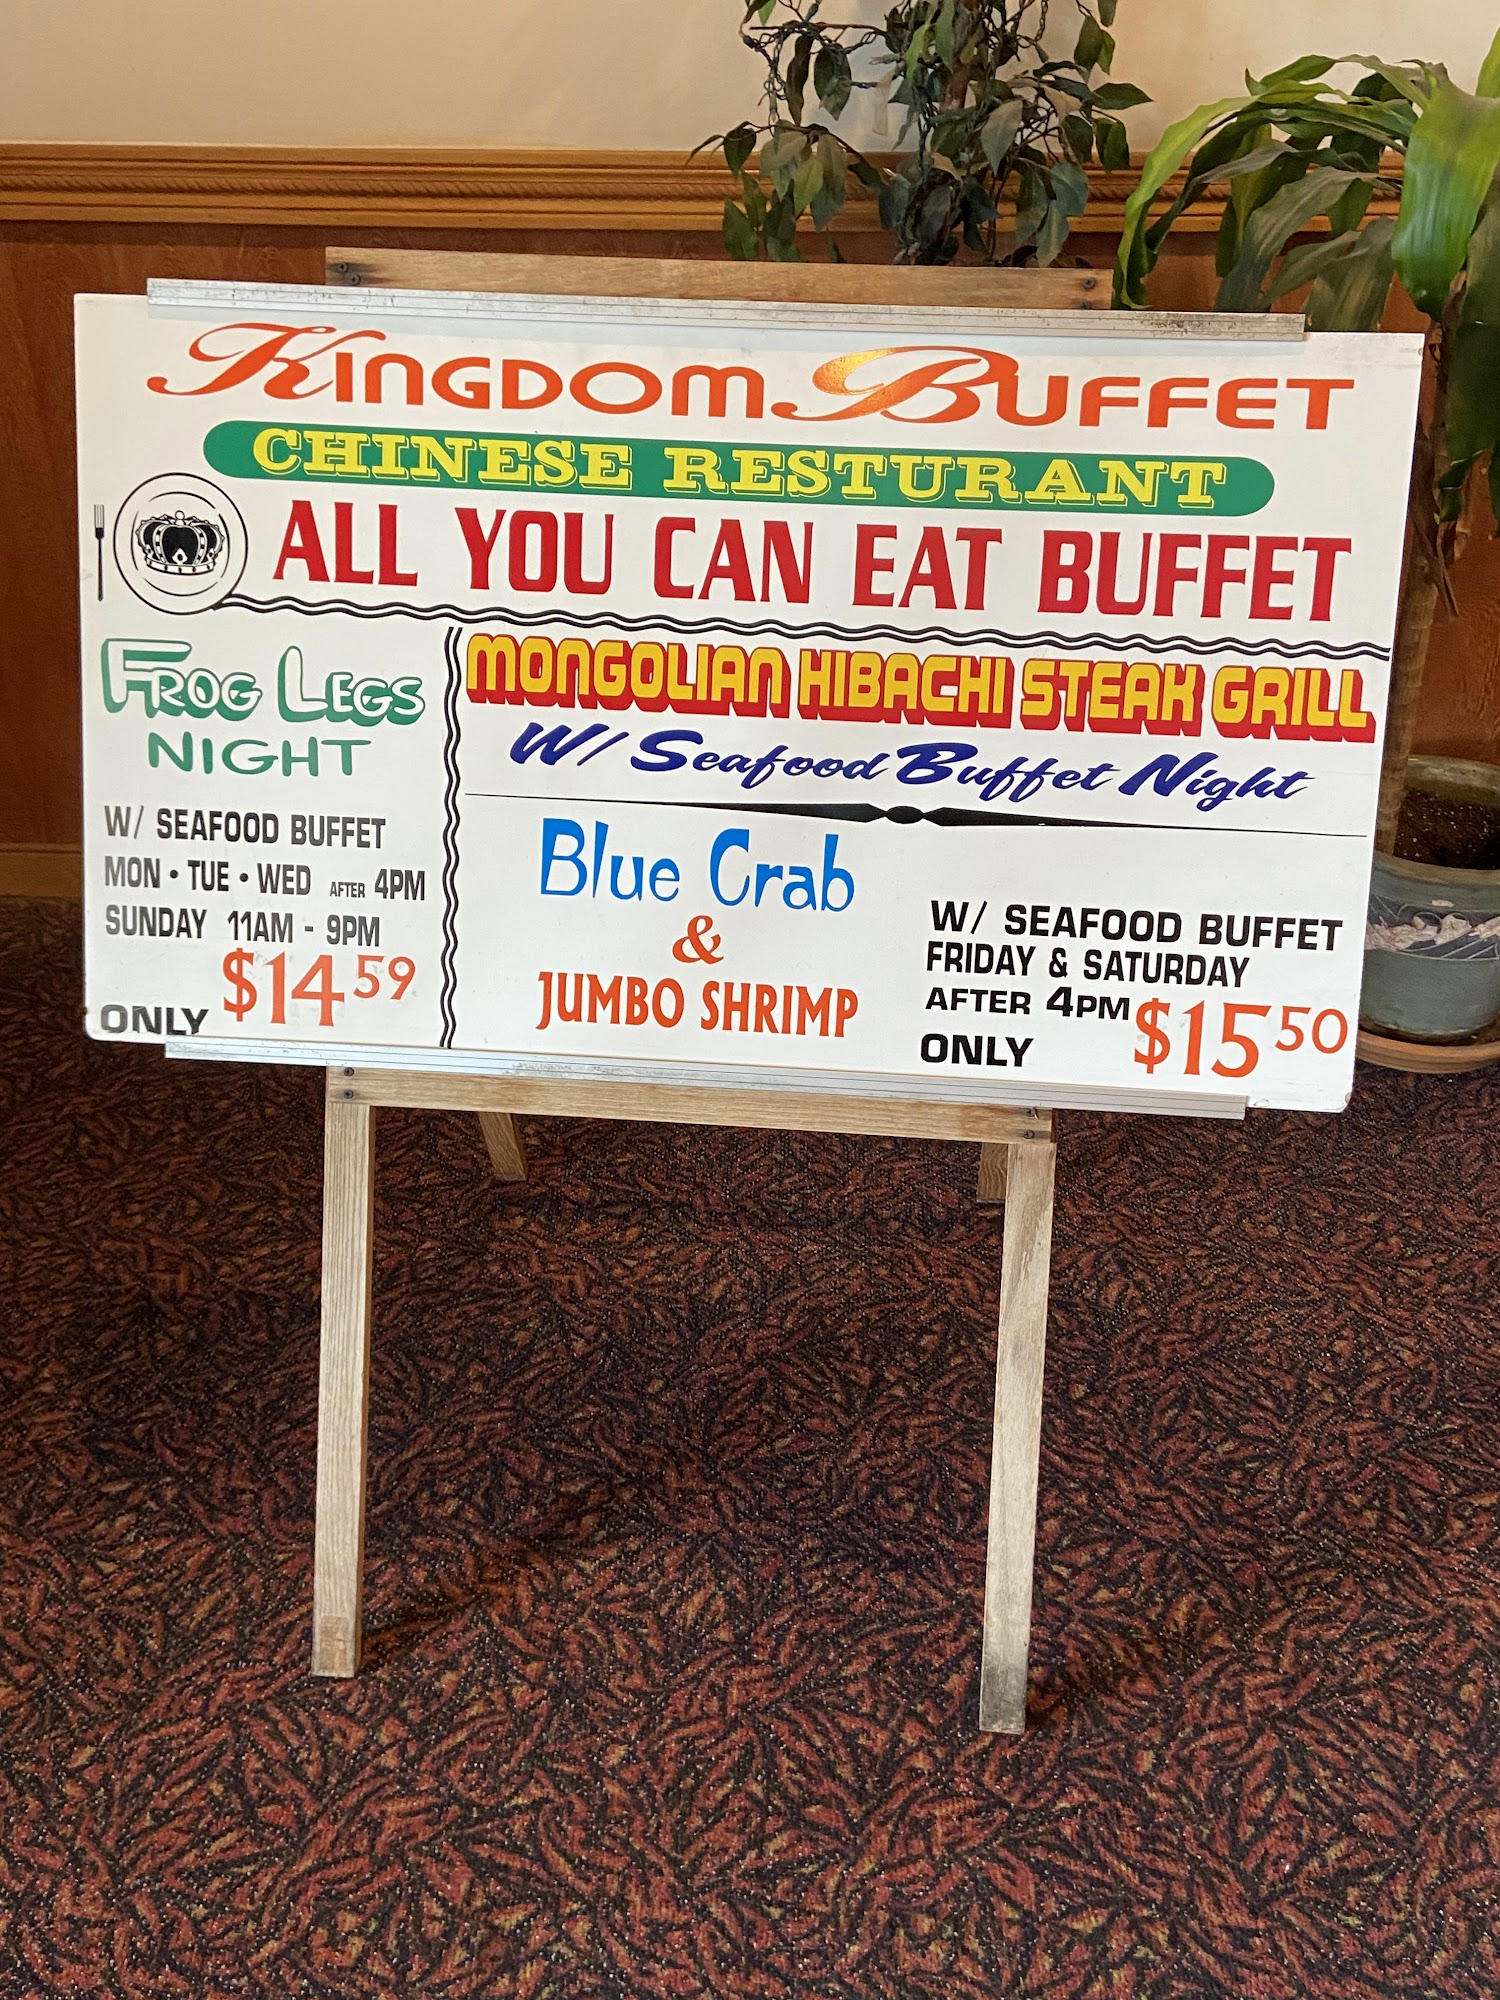 KINGDOM BUFFET
CHINESE RESTURANT
ALL YOU CAN EAT BUFFET
FROG LEGS
NIGHT
W/ SEAFOOD BUFFET
MON • TUE • WED AFTER 4PM
SUNDAY 11AM - 9PM
ONLY $14 59
MONGOLIAN HIBACHI STEAK GRILL
W/ Seafood Buffet Night
Blue Crab
&
JUMBO SHRIMP
W/ SEAFOOD BUFFET
FRIDAY & SATURDAY
AFTER 4PM
ONLY $15 50